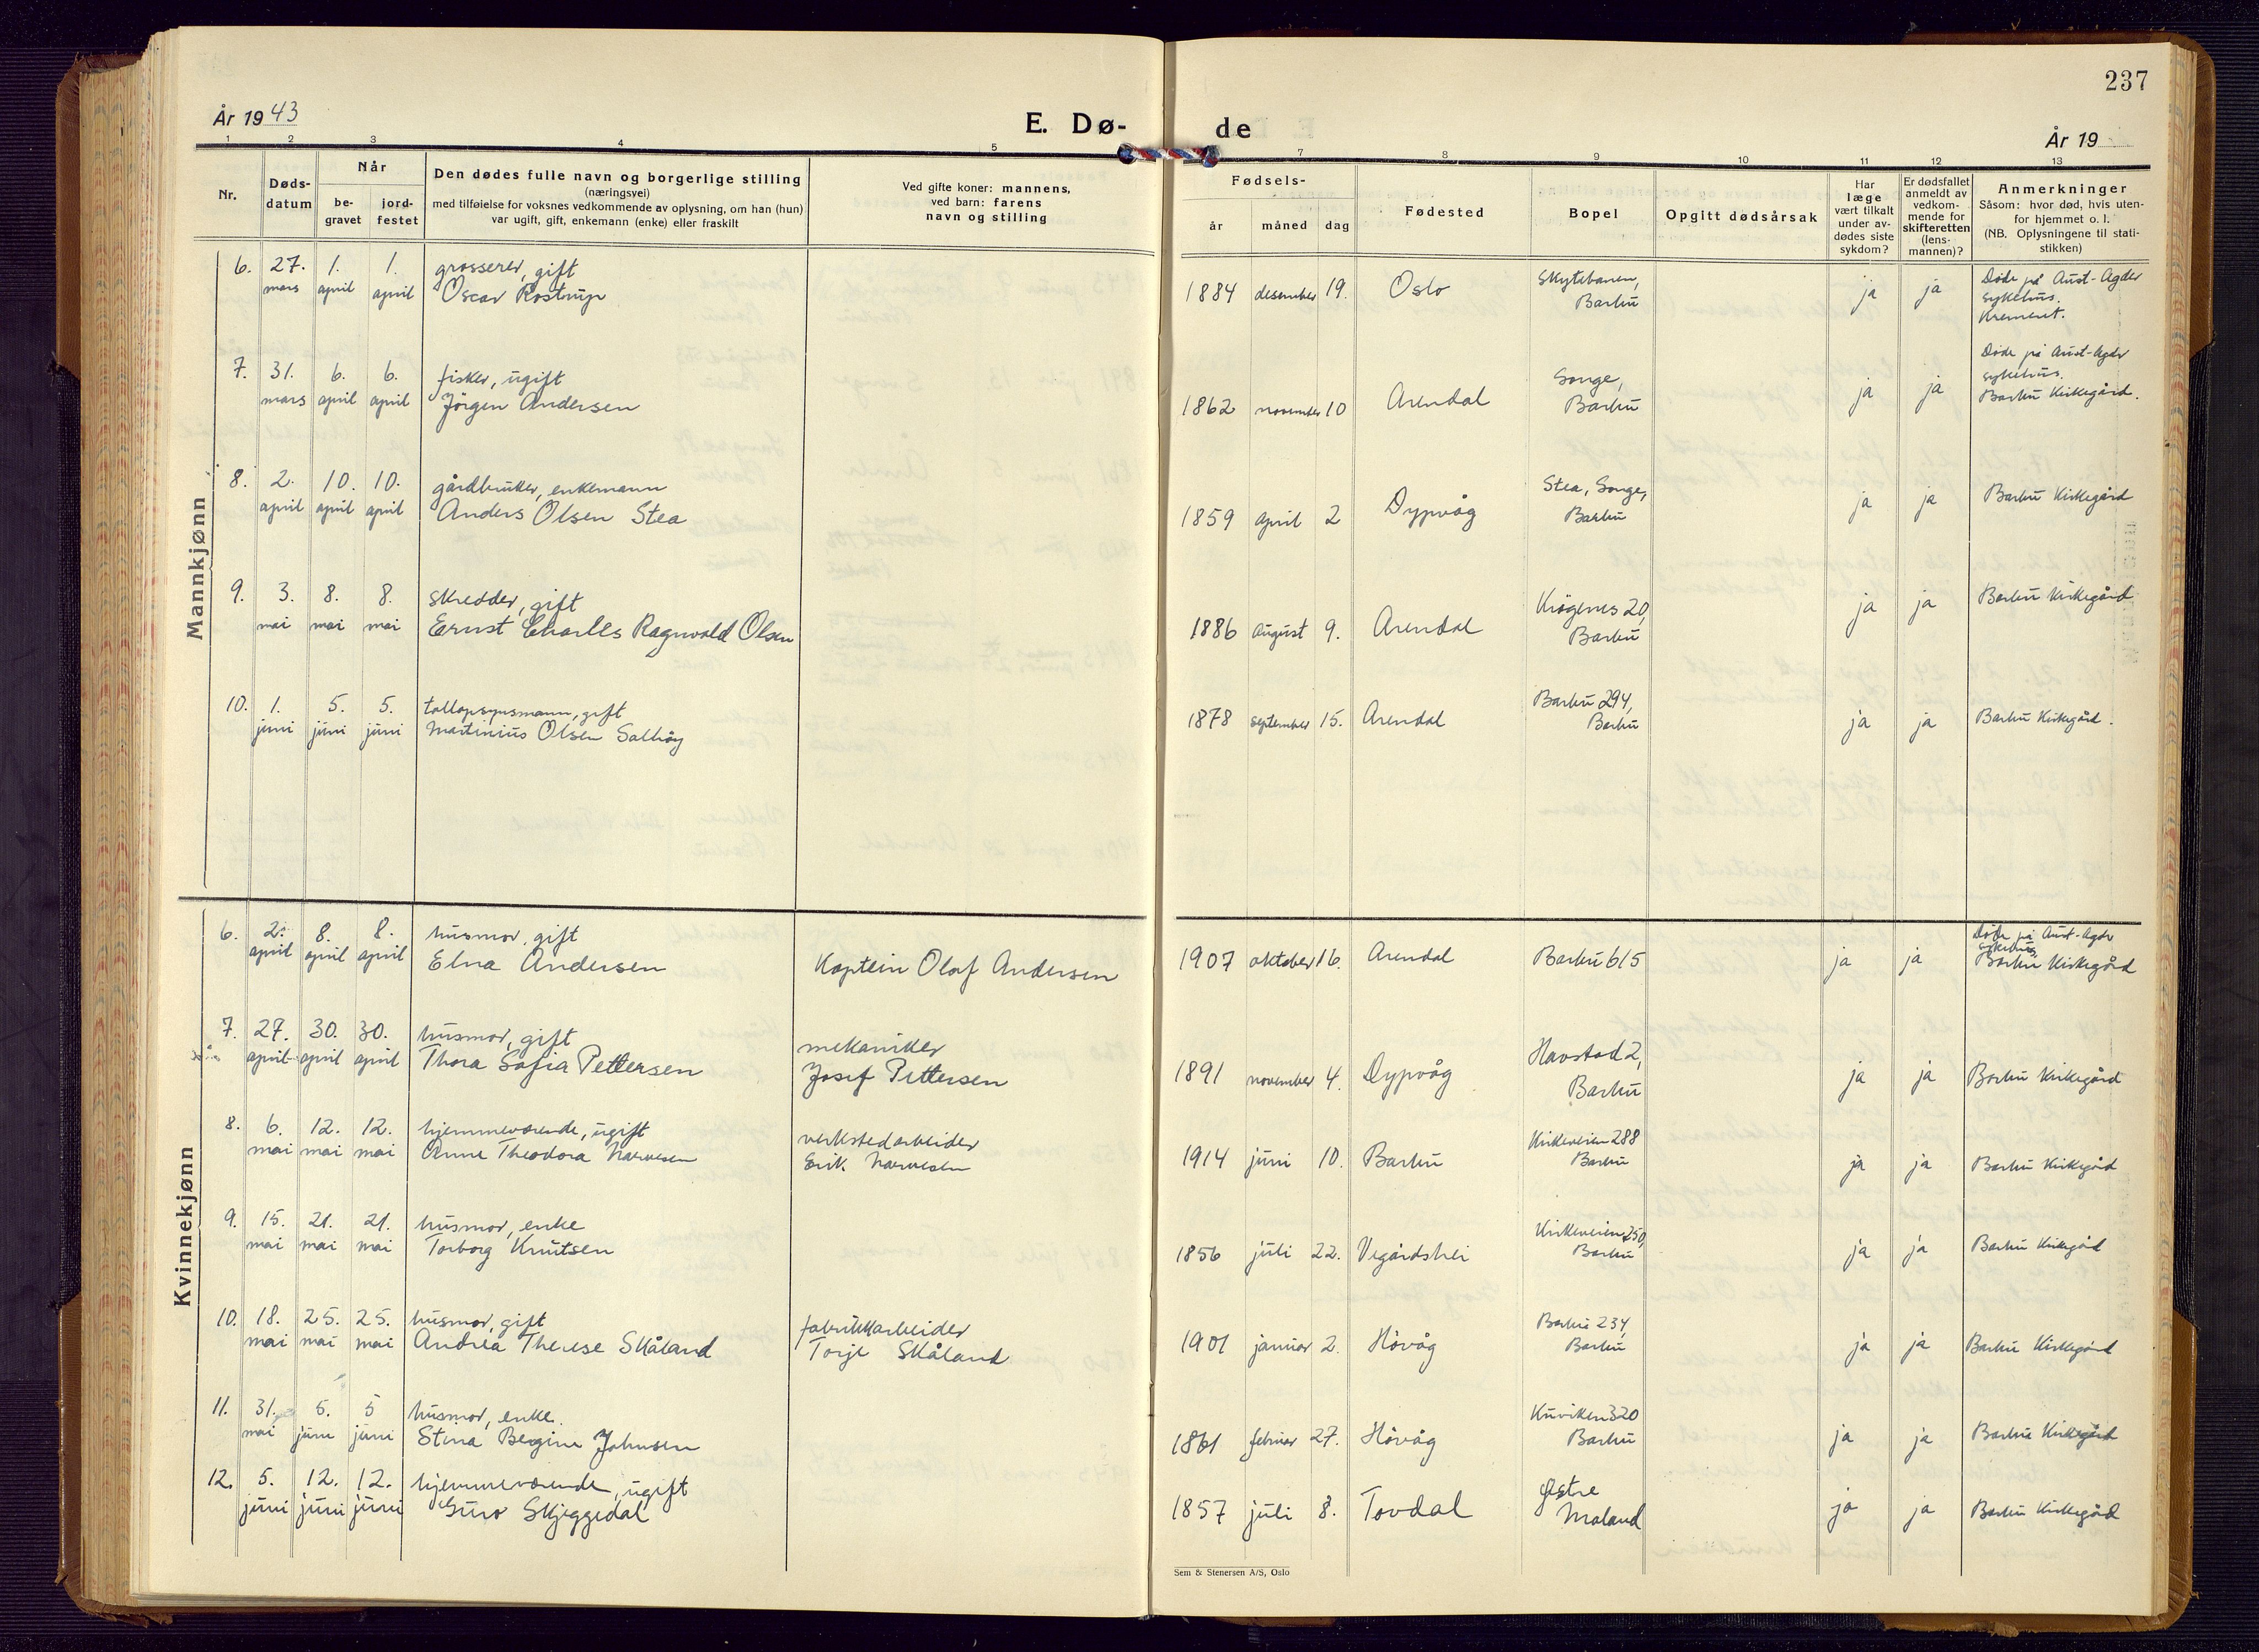 237
År 1943
E. Dø-
de
År 19
1 2 3 4 5 7 8 9 10 11 12 13
Nr.
Døds-
datum
Når
be-
gravet
jord-
festet
Den dødes fulle navn og borgerlige stilling
(næringsvei)
med tilføielse for voksnes vedkommende av oplysning, om han (hun)
var ugift, gift, enkemann (enke) eller fraskilt
Ved gifte koner: mannens,
ved barn: farens
navn og stilling
Fødsels-
år måned dag
Fødested
Bopel
Opgitt dødsårsak
Har
læge
vært tilkalt
under av-
dødes siste
sykdom?
Er dødsfallet
anmeldt av
vedkom-
mende for
skifteretten
(lens-
mannen)?
Anmerkninger
Såsom: hvor død, hvis uten-
for hjemmet o. l.
(NB. Oplysningene til stati-
stikken)
Mannkjønn
6. 27. 1. 1. grosserer, gift
mars april april Oscar Rostrup
1884 desember 19. Oslo Skytebanen,
Barbu
ja ja Døde på Aust-Agder
sykehus.
Kremert.
7. 31. 6. 6. fisker, ugift
mars april april Jörgen Andersen
1862 november 10 Arendal Songe,
Barbu
ja ja Døde på Aust-Agder
sykehus.
Barbu Kirkegård.
8. 2. 10. 10. gårdbruker, enkemann
april april april Anders Olsen Stea
1859 april 2 Dypvåg Stea, Songe,
Barbu
ja ja Barbu Kirkegård
9. 3. 8. 8. skredder, gift
mai mai mai Ernst Charles Ragnvald Olsen
1886 august 9. Arendal Krögenes 20,
Barbu
ja ja Barbu Kirkegård
10. 1. 5. 5. tollopsynsmann, gift
juni juni juni Martinius Olsen
1878 september 15. Arendal Barbu 294,
Barbu
ja ja Barbu Kirkegård.
Kvinnekjønn
6. 2. 8. 8. husmor, gift
april april april Elna Andersen Kaptein Olaf Andersen
1907 oktober 16. Arendal Barbu 615
ja ja Døde på Aust-Agder
sykehus
Barbu Kirkegård
7. 27. 30. 30. husmor, gift mekaniker
april april april Thora Sofia Pettersen Josef Pettersen
1891 november 4. Dypvåg Havstad 2,
Barbu
ja ja Barbu Kirkegård
8. 6. 12. 12. hjemmeværende, ugift verkstedarbeider
mai mai mai Anne Theodora Narvesen Erik Narvesen
1914 juni 10. Barbu Kirkeveien 288
Barbu
ja ja Barbu Kirkegård
9. 15. 21. 21. husmor, enke
mai mai mai Torborg Knutsen
1856 juli 22. Vegårdshei Kirkeveien 250,
Barbu
ja ja Barbu Kirkegård
10. 18. 25. 25. husmor, gift fabrikkarbeider
mai mai mai Andrea Therese Skåland Torje Skåland
1901 januar 2. Høvåg Barbu 234,
Barbu
ja ja Barbu Kirkegård
11. 31. 5. 5 husmor, enke.
mai juni juni Stina Bergine Johnsen
1861 februar 27. Høvåg Kuviken 320
Barbu
ja ja Barbu Kirkegård
12. 5. 12. 12. hjemmeværende, ugift
juni juni juni Guro Skjeggedal
1857 juli 8. Tovdal Østre
Moland
ja ja Barbu Kirkegård
Sem & Stenersen A/S, Oslo